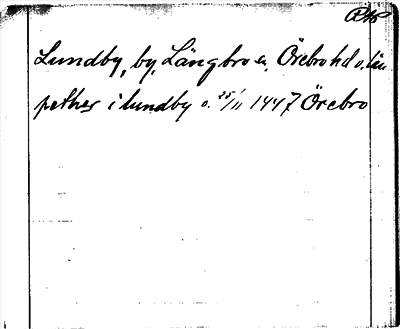 Lundby, by, Längbro sn, Örebro hd o. län
pether i lundby o. 25/11 1447 Örebro